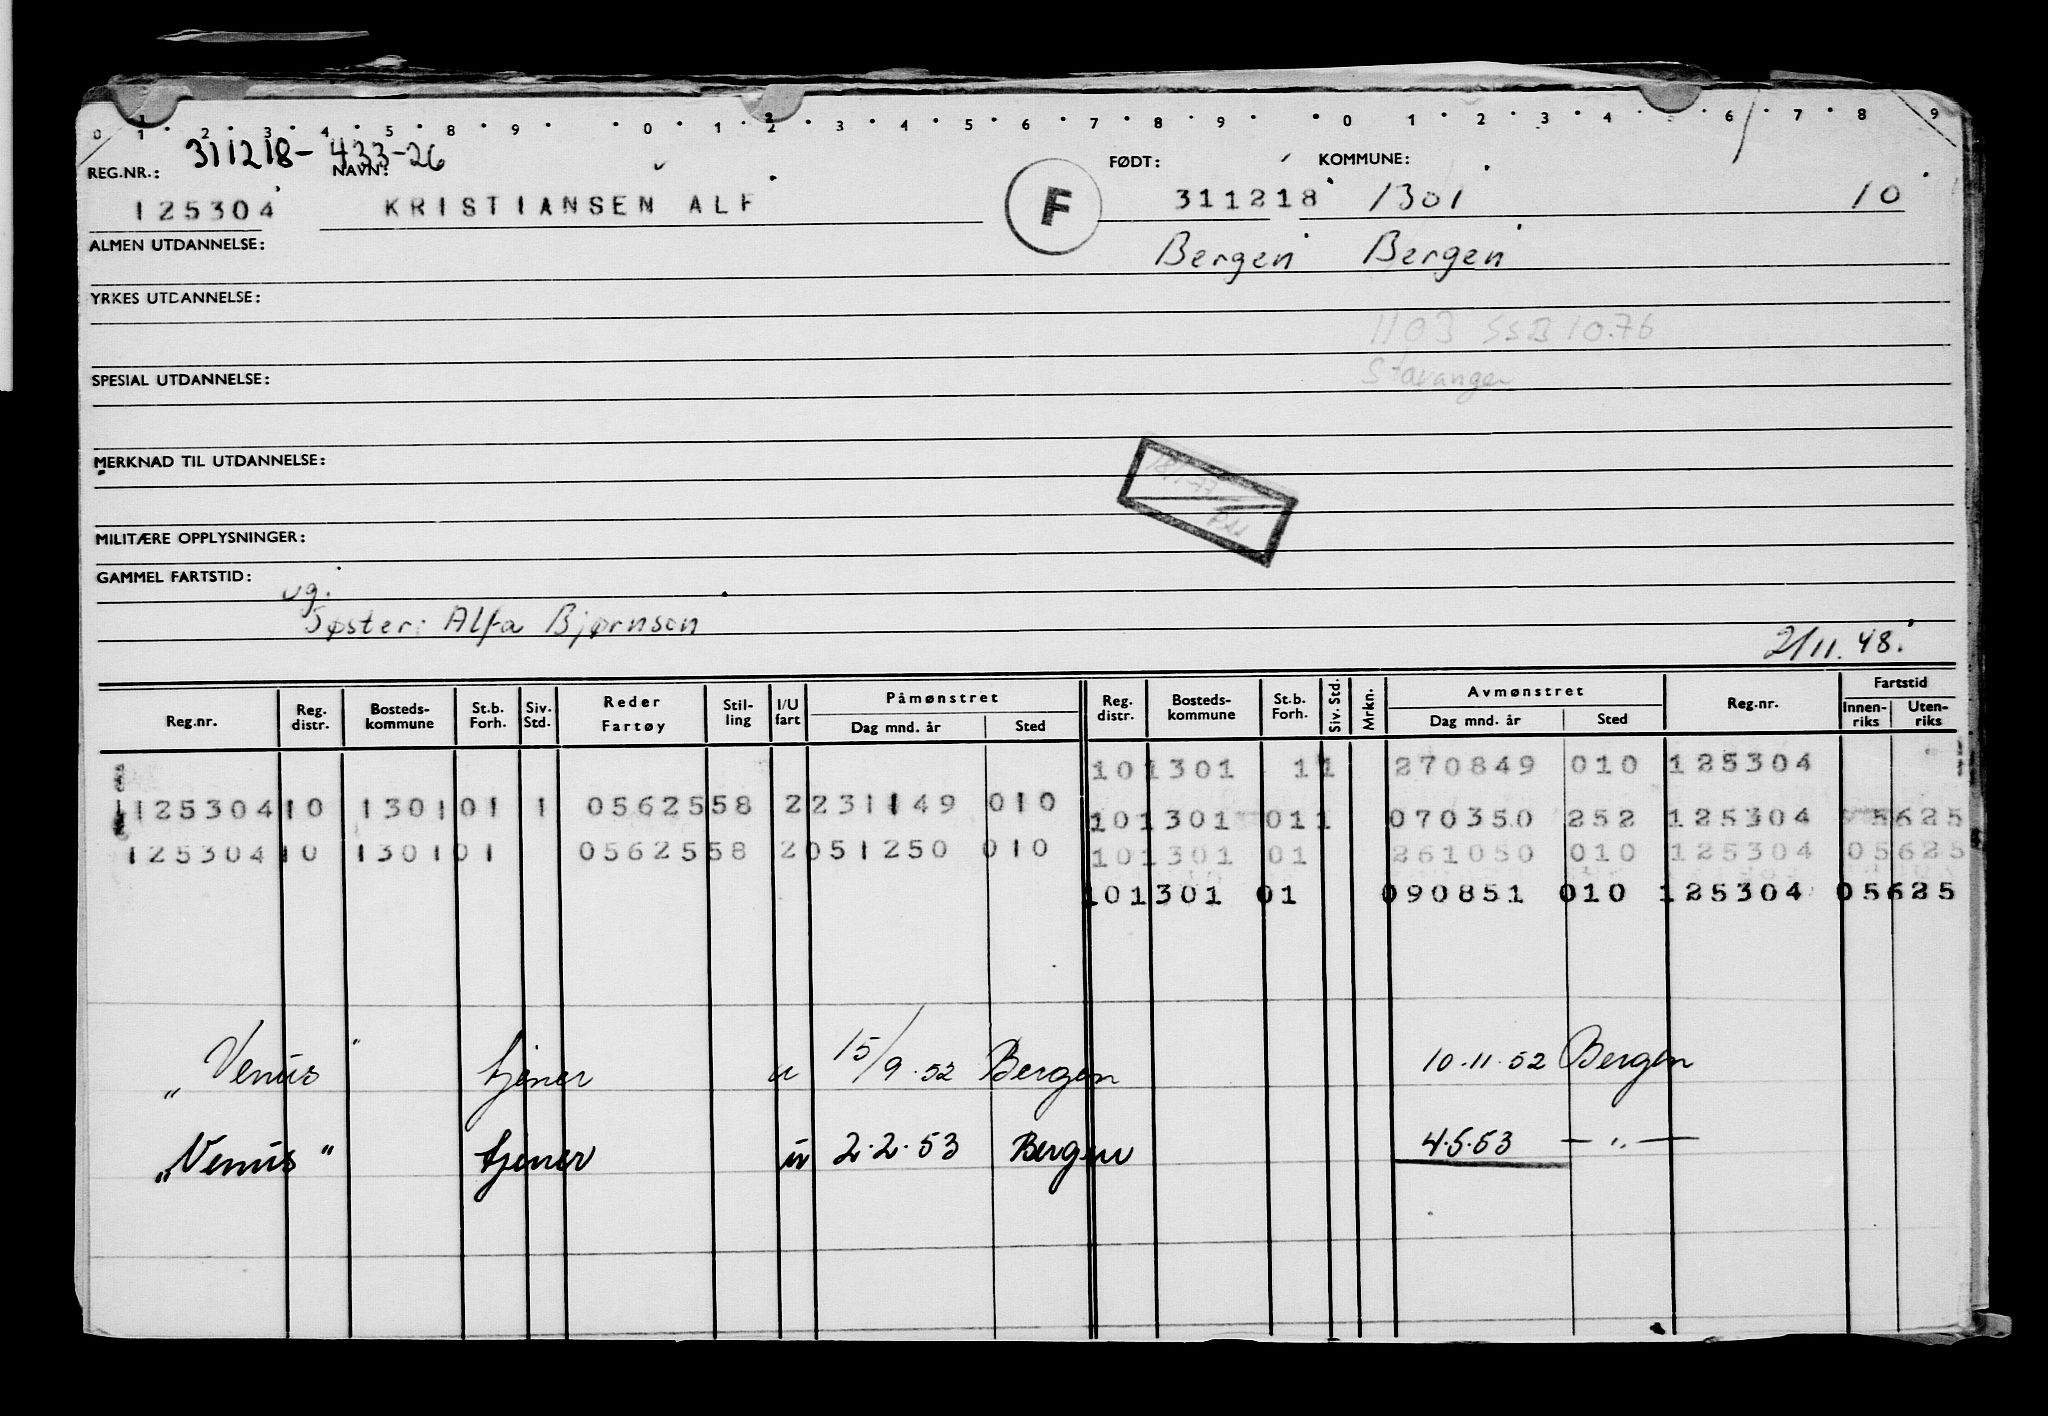 0 1 2 3 4 5 8 9 0 1 2 3 4 5 6 7 8 9 0 1 2 3 4 6 7 8 9
311218-433-26
REG.NR.: NAVN: FØDT: KOMMUNE:
125304 KRISTIANSEN ALF F 311218 1301 10
ALMEN UTDANNELSE: Bergen Bergen
YRKES UTDANNELSE:
1103 SSB 10.76
Stavanger
SPESIAL UTDANNELSE:
MERKNAD TIL UTDANNELSE:
MILITÆRE OPPLYSNINGER:
GAMMEL FARTSTID:
ug.
Søster: Alfa Bjørnson
2/11.48.
Reg.nr. Reg. distr. Bosteds-kommune St.b. Forh. Siv. Std. Reder Fartøy Stil-ling I/U fart Påmønstret Dag mnd. år Sted Reg. distr. Bosteds-kommune St.b. Forh. Siv. Std. Mrkn. Avmønstret Dag mnd. år Sted Reg.nr. Fartstid Innen-riks Uten-riks
101301 11 270849 010 125304
125304 10 1301 01 1 0562558 2 231149 010 101301 011 070350 252 125304 5625
125304 10 1301 01 0562558 2 051250 010 101301 01 261050 010 125304 05625
101301 01 090851 010 125304 05625
„Venus" tjener u 15/9.52 Bergen 10.11.52 Bergen
„Venus" tjener u 2.2.53 Bergen 4.5.53 — " —